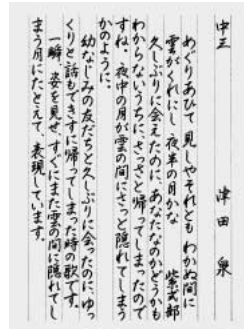 中三　津田　泉
めぐりあひて　見しやそれとも　わかぬ間に
雲がくれにし　夜半の月かな　紫式部
久しぶりに会えたのに、あなたなのかどうかも
わからないうちに、さっさと帰ってしまったので
すね。夜中の月が雲の間にさっと隠れてしまう
かのように。
幼なじみの友だちと久しぶりに会ったのに、ゆっ
くりと話もできずに帰ってしまった時の歌です。
一瞬、姿を見せ、すぐにまた雲の間に隠れてし
まう月にたとえて、表現しています。